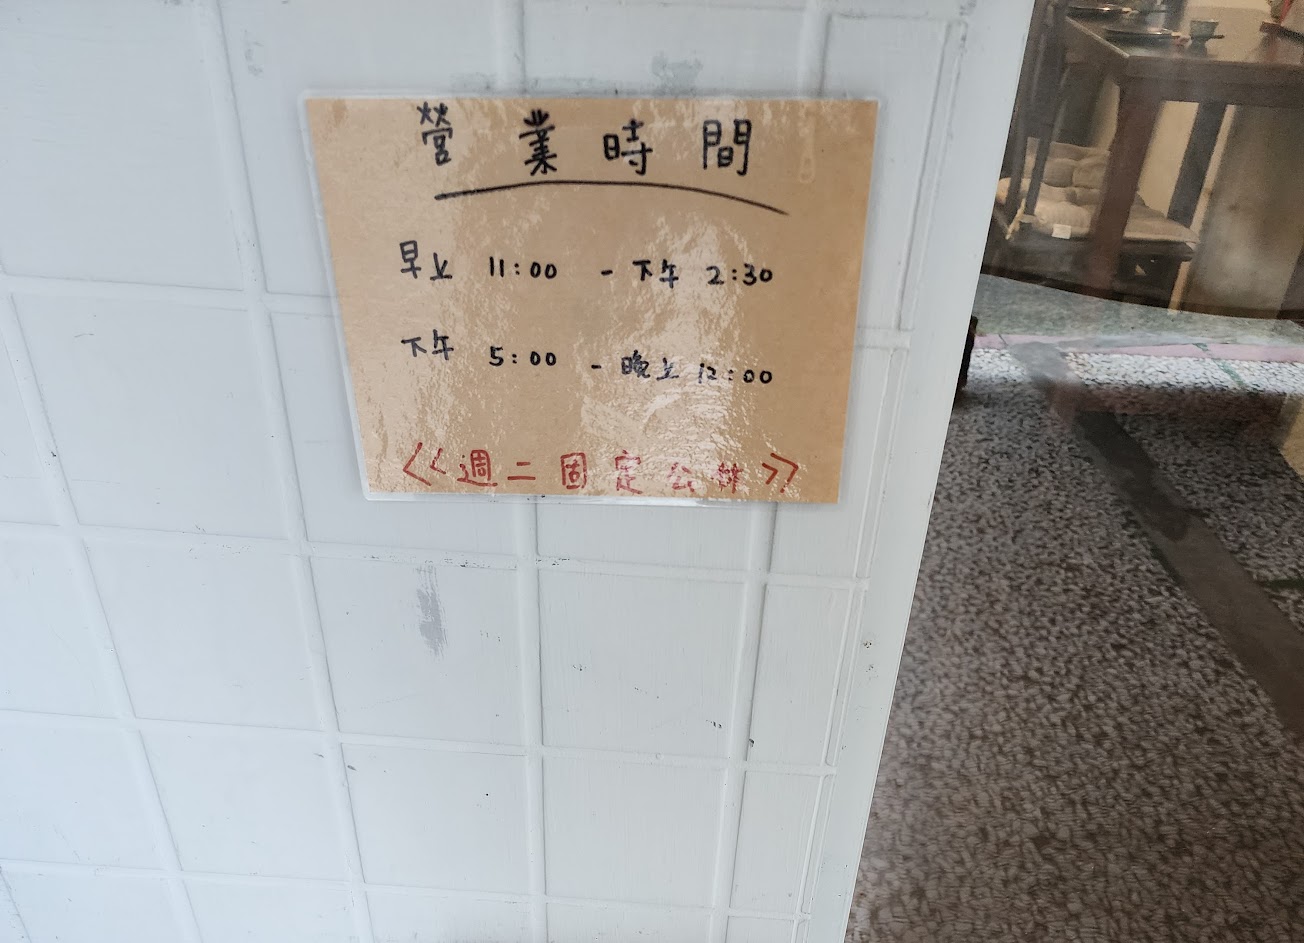 營業時間
早上 11:00 - 下午 2:30
下午 5:00 - 晚上 12:00
<<週二固定公休>>